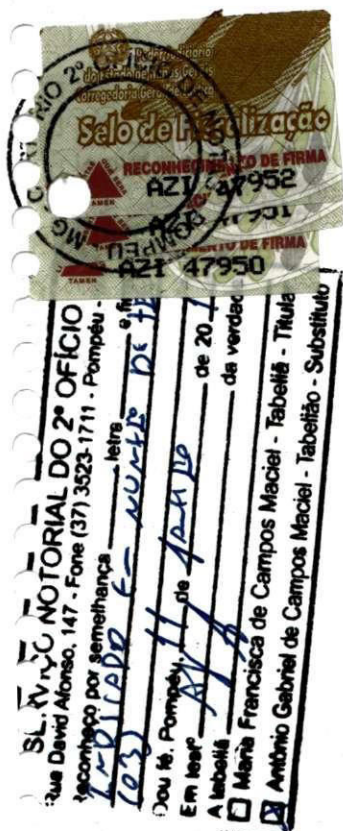 Poder Judiciário
do Estado de Minas Gerais
Corregedoria Geral de Justiça
Selo de Fiscalização
RECONHECIMENTO DE FIRMA
AZI 47952
RECONHECIMENTO DE FIRMA
AZI 47950
MG
POMPEU
2º
NOTORIAL DO 2º OFÍCIO
Rua David Afonso, 147 - Fone (37) 3523-1711 - Pompéu -
Reconheço por semelhança letra e fi
INDICADO NUMERO DE
(03)
Dou fé. Pompéu, 11 de de 20
Em testº da verdad
A tabeliã
Maria Francisca de Campos Maciel - Tabeliã - Titula
Antônio Gabriel de Campos Maciel - Tabelião - Substituto